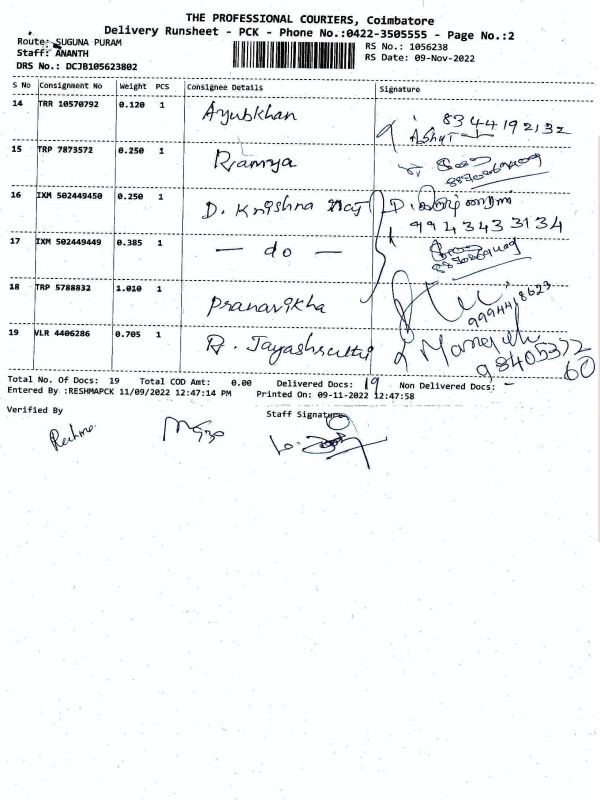 THE PROFESSIONAL COURIERS, Coimbatore
Delivery Runsheet - PCK - Phone No.:0422-3505555 - Page No.:2
Route: SUGUNA PURAM
RS No.: 1056238
Staff: ANANTH
RS Date: 09-Nov-2022
DRS No.: DCJB105623802
S No Consignment No Weight PCS Consignee Details Signature
14 TRR 10570792 0.120 1 Ayubkhan
8344192132
15 TRP 7873572 0.250 1 Ramya
16 IXM 502449450 0.250 1 D. Krishna Raj
9943433134
17 IXM 502449449 0.385 1 — do —
18 TRP 5788832 1.010 1 Pranavikha
9994418623
19 VLR 4406286 0.705 1
9840537260
Total No. Of Docs: 19 Total COD Amt: 0.00 Delivered Docs: 19 Non Delivered Docs: -
Entered By :RESHMAPCK 11/09/2022 12:47:14 PM Printed On: 09-11-2022 12:47:58
Verified By Staff Signature
Reshma